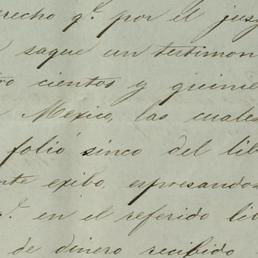 derecho q.e por el juzg
saque un testimon
cientos y quinie
Mexico, las cuales
folio sinco del lib
exibo, espresandos
en el referido lib
de dinero recibido